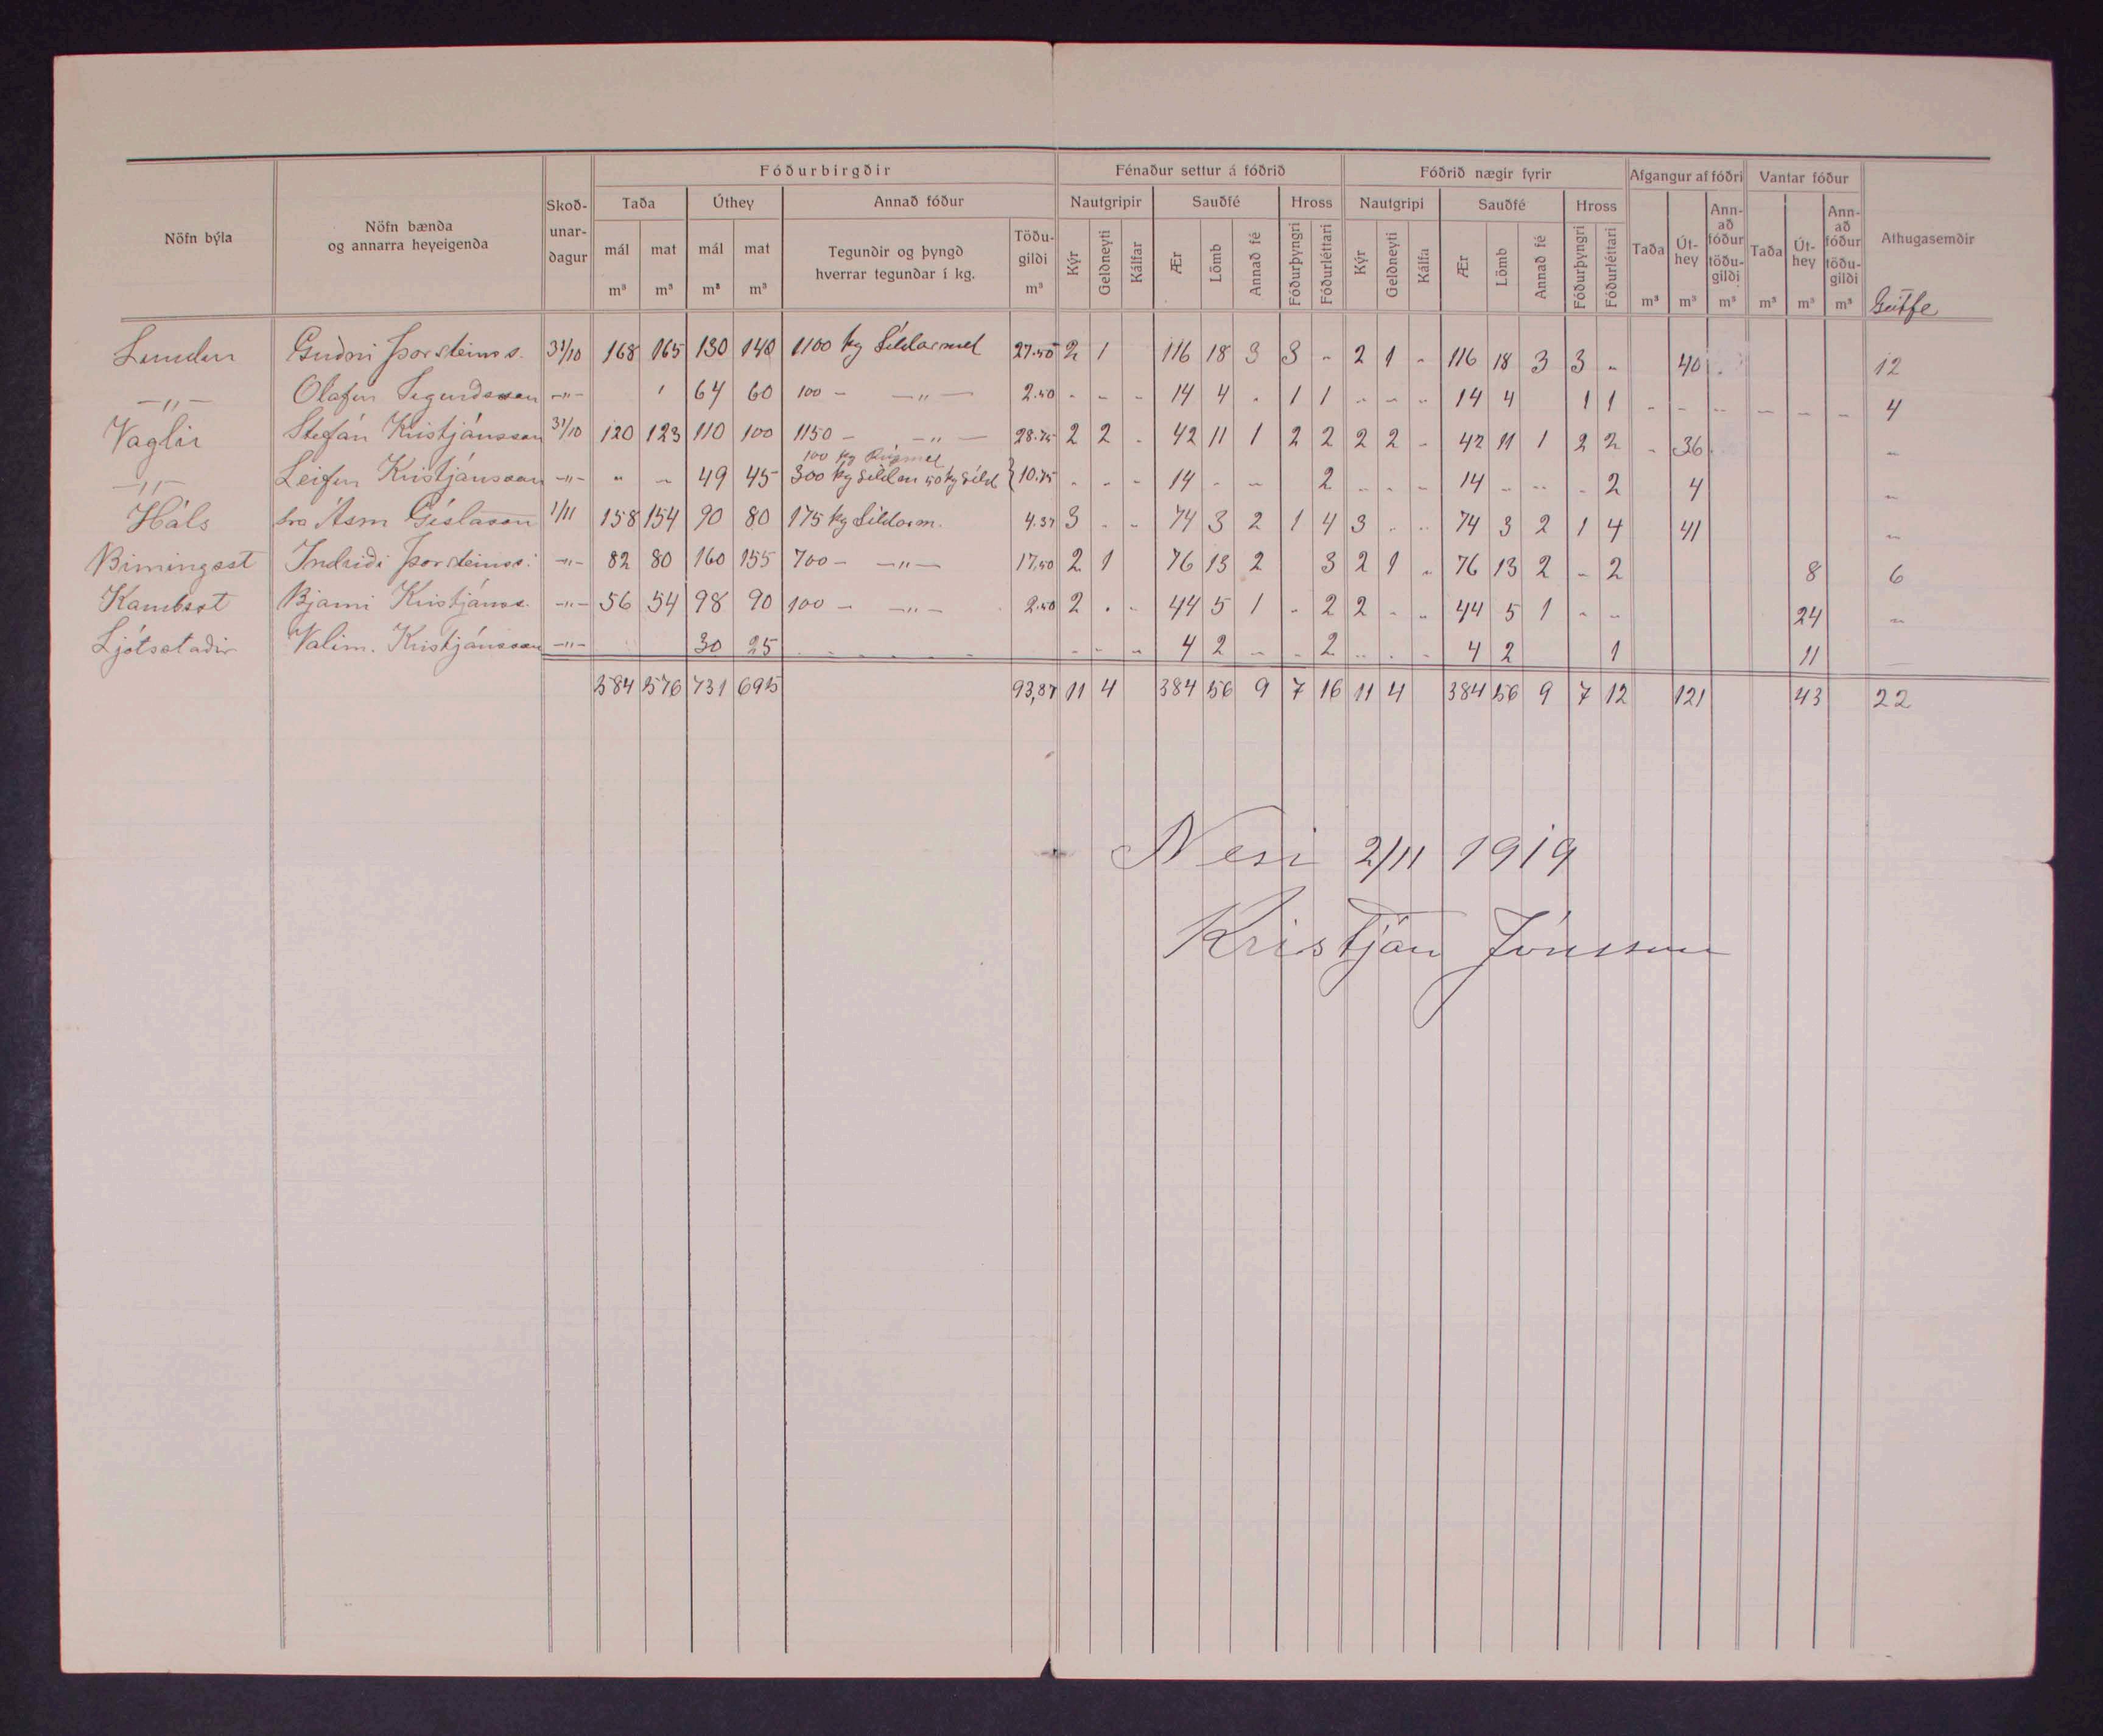 Nöfn býla
Nöfn bænda og annarra heyeigenda
Skoðunardagur
Fóðurbirgðir
Taða
mál m³
mat m³
Úthey
mál m³
mat m³
Annað fóður
Tegundir og þyngd hverrar tegundar í kg.
Töðugildi m³
Fénaður settur á fóðrið
Nautgripir
Kýr
Geldneyti
Kálfar
Sauðfé
Ær
Lömb
Annað fé
Hross
Fóðurþyngri
Fóðurléttari
Fóðrið nægir fyrir
Nautgripi
Kýr
Geldneyti
Kálfa
Sauðfé
Ær
Lömb
Annað fé
Hross
Fóðurþyngri
Fóðurléttari
Afgangur af fóðri
Taða m³
Úthey m³
Annað fóður töðugildi m³
Vantar fóður
Taða m³
Úthey m³
Annað fóður töðugildi m³
Athugasemdir
Geitfe
Lundur Guðni Þorsteinss. 31/10 168 165 130 140 1100 kg Síldarmel 27.50 2 1 116 18 3 3 - 2 1 - 116 18 3 3 - 40 12
-"- Olafur Sigurdsson -"- 64 60 100 - -"- 2.50 - - - 14 4 - 1 1 - - - 14 4 1 1 - - - - - - 4
Vaglir Stefán Kristjánsson 31/10 120 123 110 100 1150 - -"- 28.75 2 2 - 42 11 1 2 2 2 2 - 42 11 1 2 2 - 36 "
100 kg Rúgmel
-"- Leifur Kristjánsson -"- " - 49 45 300 kg síldar 50 kg síld } 10.75 - - - 14 - - 2 - - - 14 - - - 2 4 "
Háls sra Ásm Gíslason 1/11 158 154 90 80 175 kg Síldarm. 4.37 3 - - 74 3 2 1 4 3 - - 74 3 2 1 4 41 "
Birningsst Indriði Þorsteinss. -"- 82 80 160 155 700 - -"- 17,50 2 1 76 13 2 3 2 1 - 76 13 2 - 2 8 6
Kambsst Bjarni Kristjánss. -"- 56 54 98 90 100 - -"- 2.50 2 - - 44 5 1 - 2 2 - - 44 5 1 - - 24 "
Ljótsstaðir Valim. Kristjánsson -"- 30 25 - - - 4 2 - - 2 - - - 4 2 1 11
584 576 731 695 93,87 11 4 384 56 9 7 16 11 4 384 56 9 7 12 121 43 22
Nesi 2/11 1919
Kristján Jónsson